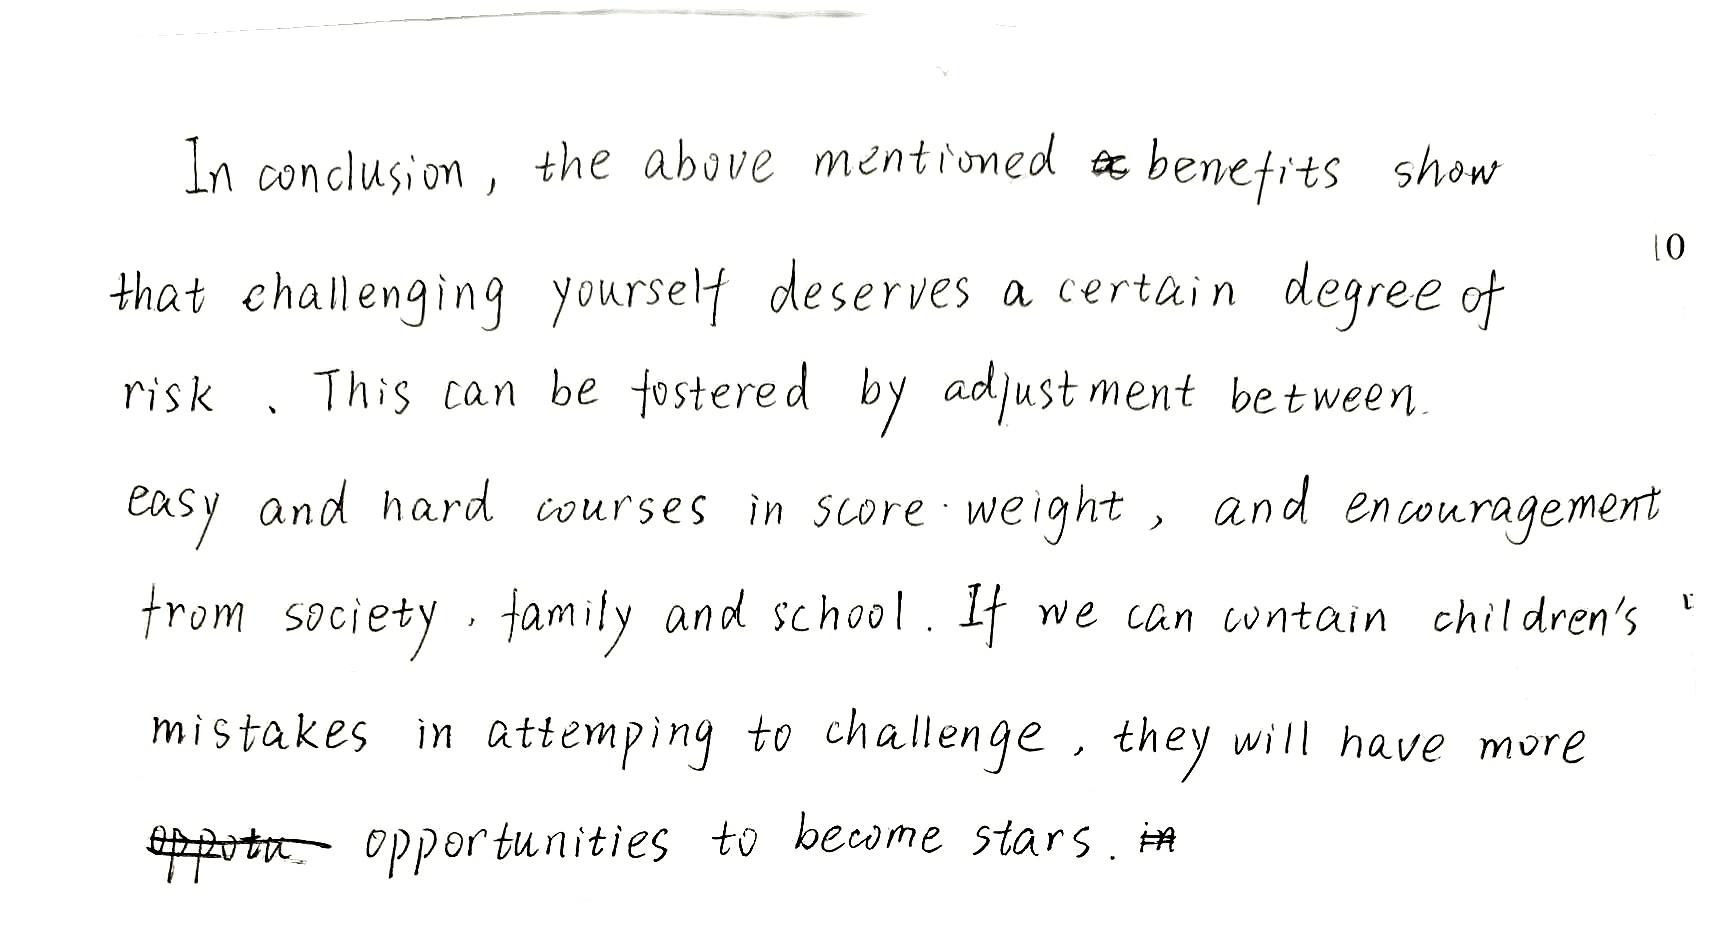 In conclusion, the above mentioned benefits show
10
that challenging yourself deserves a certain degree of
risk. This can be fostered by adjustment between
easy and hard courses in score weight, and encouragement
from society, family and school. If we can contain children's
mistakes in attemping to challenge, they will have more
oppotu opportunities to become stars. in